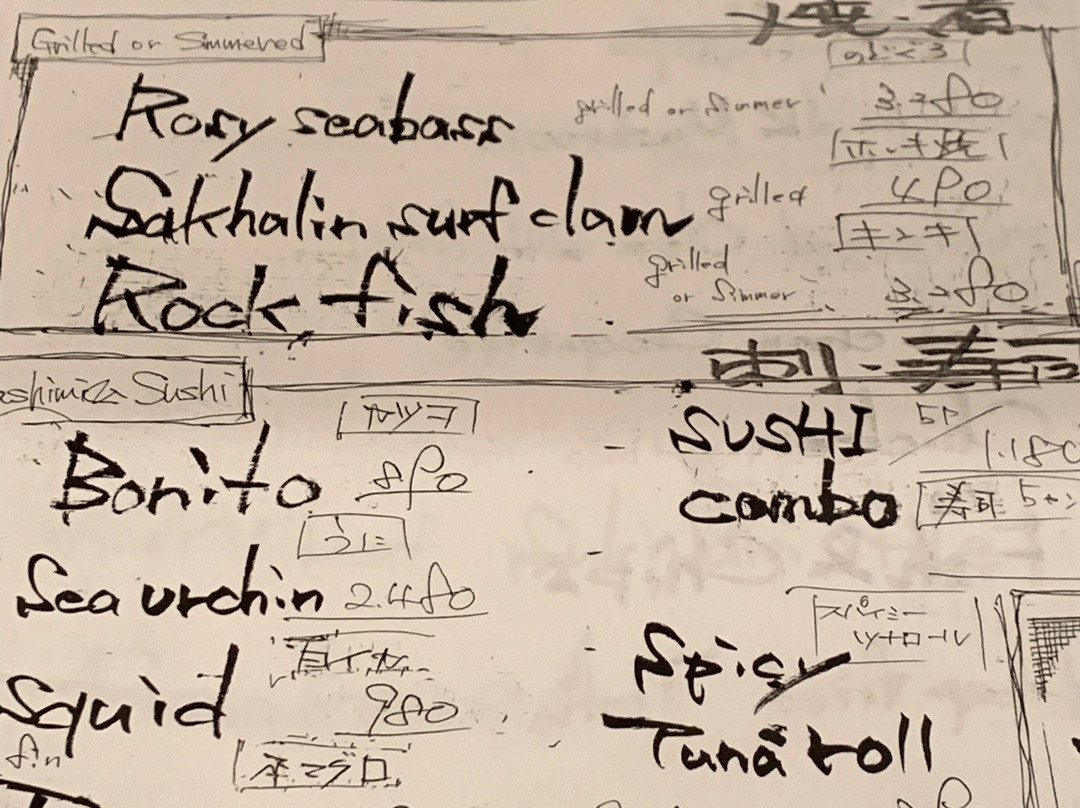 Grilled or Simmered
のどぐろ
Rosy seabass grilled or simmer 3.280
ホッキ焼
Sakhalin surf clam grilled 480
キンキ
Rock fish grilled or simmer 3.280
Sushi
刺・寿司
カツヲ
Bonito 880
SUSHI combo 5P/
寿司
うに
Sea urchin 2.480
スパイシーツナロール
Spicy Tuna roll
Squid 980
本マグロ